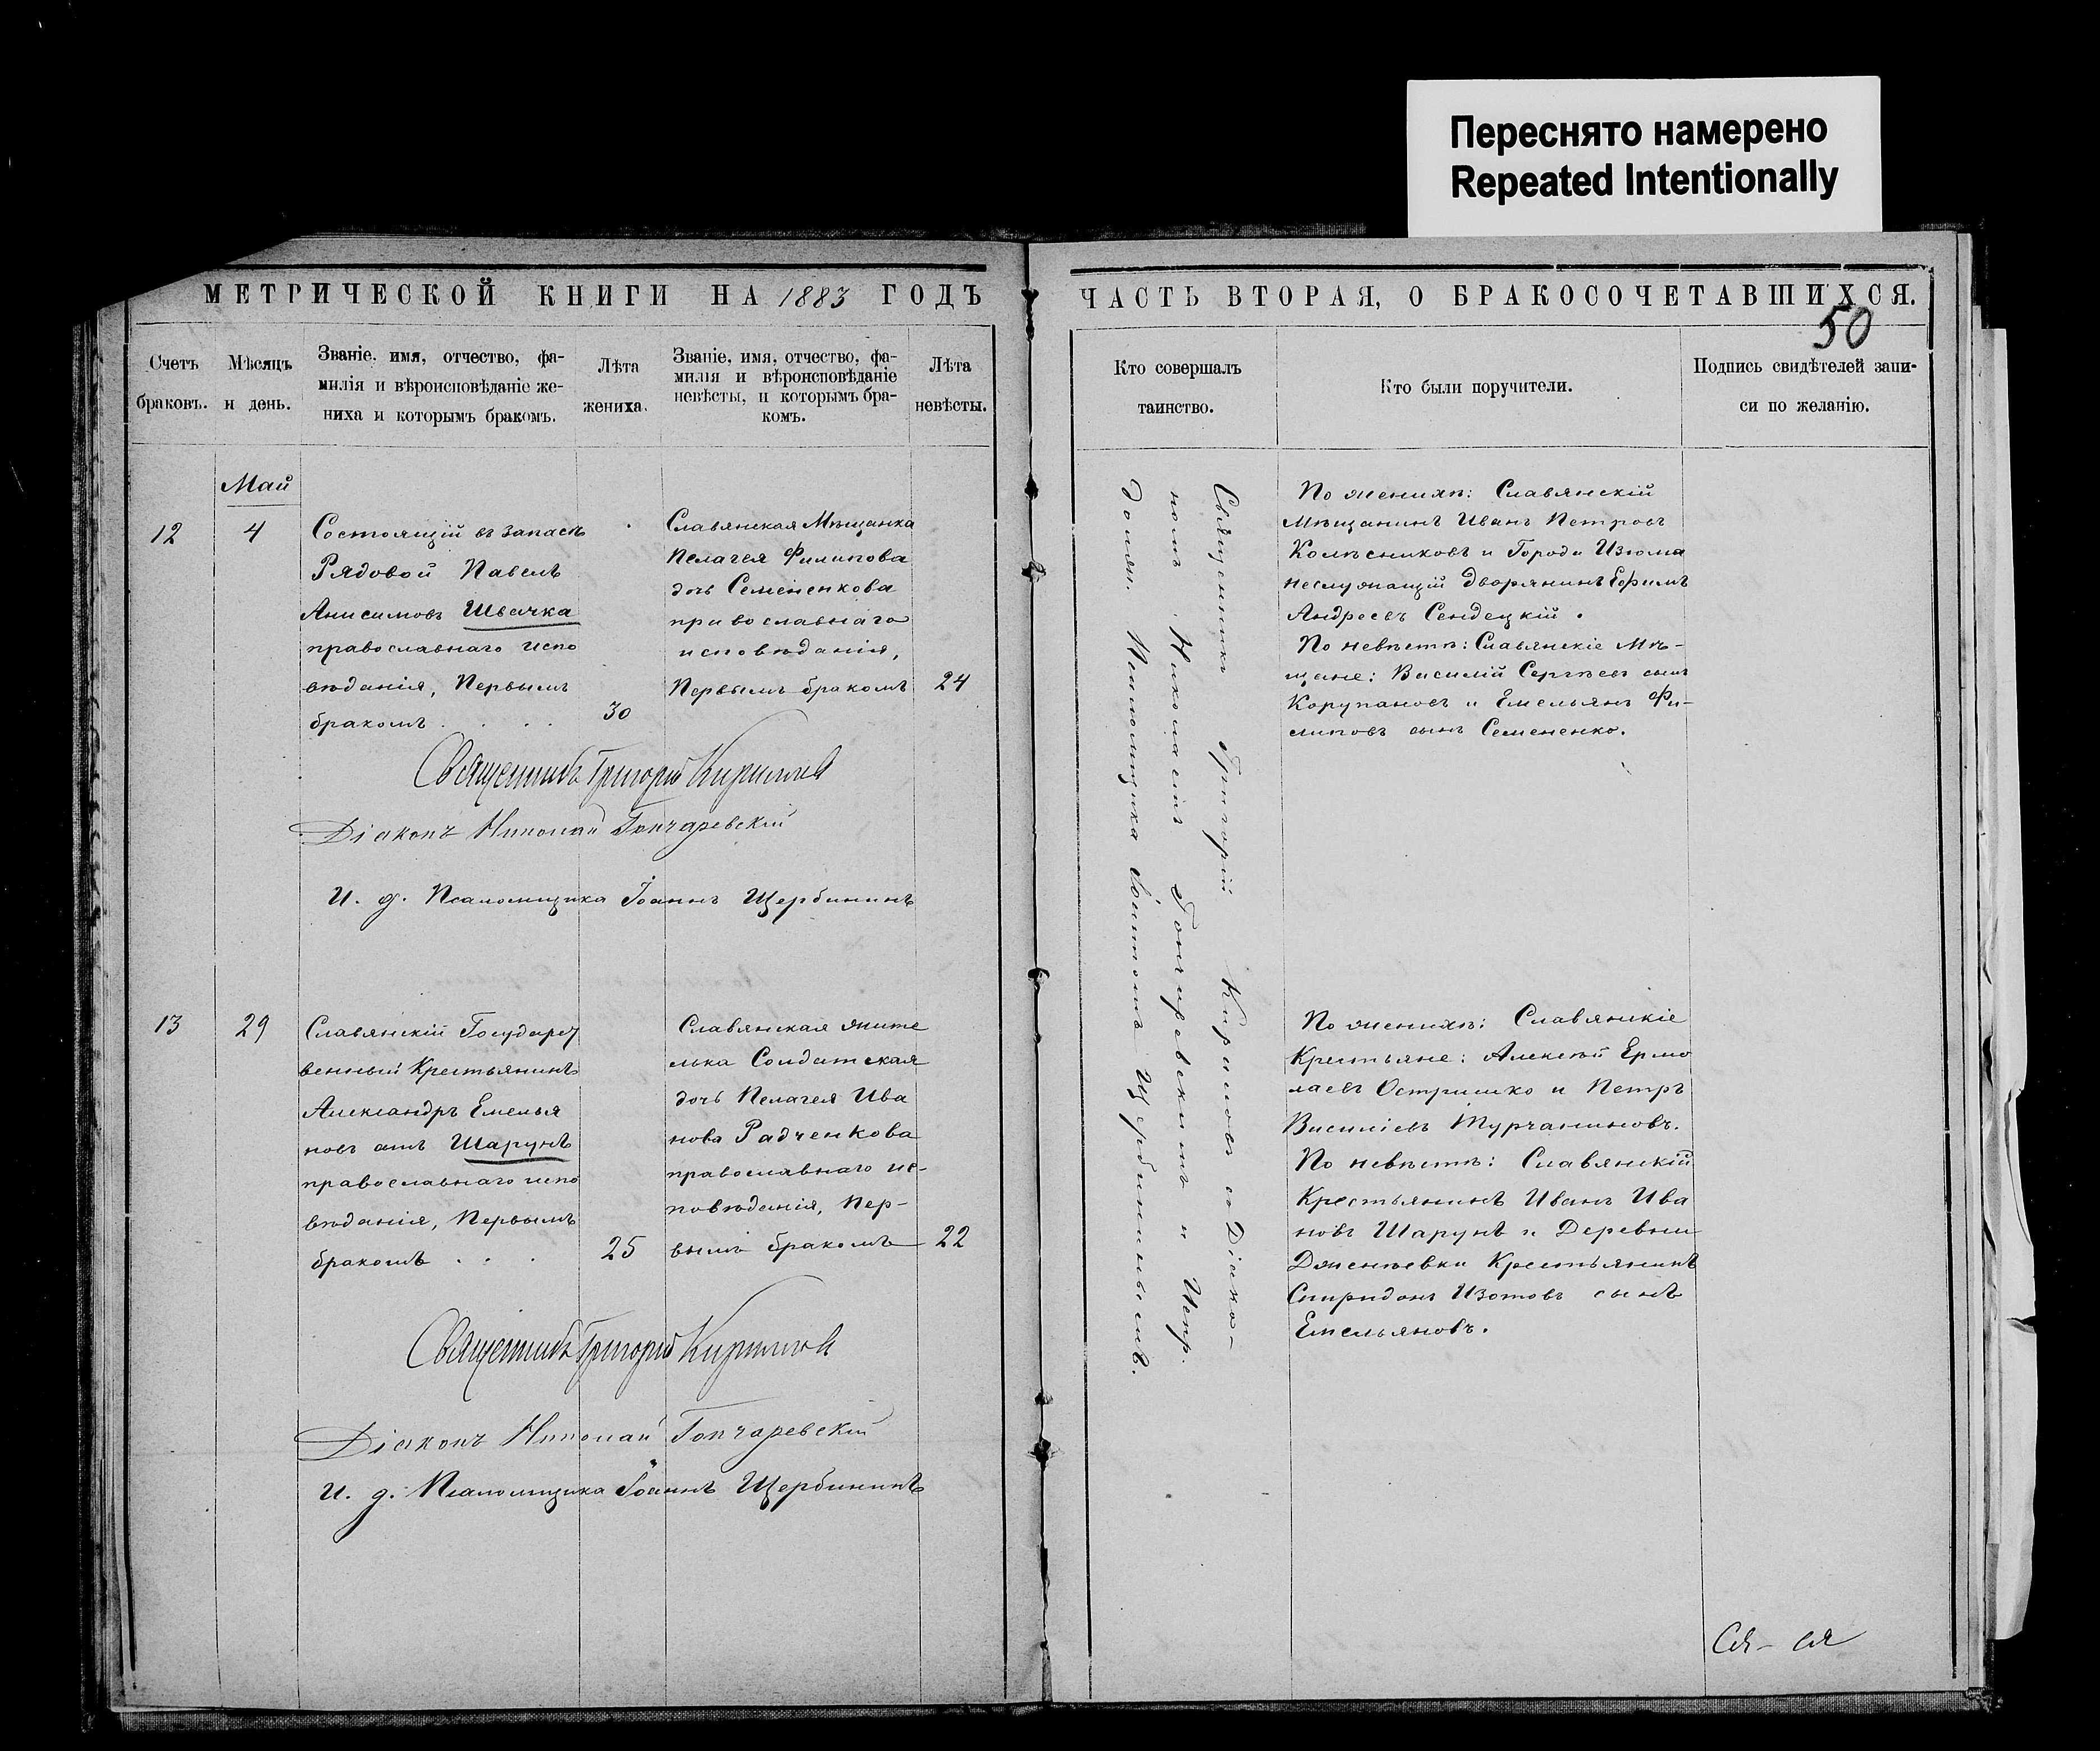 Переснято намерено
Repeated Intentionally
МЕТРИЧЕСКОЙ КНИГИ НА 1883 ГОДЪ
Счетъ
браковъ.
Мѣсяцъ
и день.
Званіе, имя, отчество, фа-
милія и вѣроисповѣданіе же-
ниха и которымъ бракомъ.
Лѣта
жениха.
Званіе, имя, отчество, фа-
милія и вѣроисповѣданіе
невѣсты, и которымъ бра-
комъ.
Лѣта
невѣсты.
Май
12
4
Состоящій въ запасѣ
Рядовой Павелъ
Анисимовъ Швачка
православнаго испо
вѣданія, Первымъ
бракомъ . . . .
30
Славянская Мѣщанка
Пелагея Филипова
дочь Семененкова
православнаго
исповѣданія,
Первымъ бракомъ
24
Священникъ Григорій Кириловъ
Діаконъ Николай Гончаревскій
И. д. Псаломщика Іоаннъ Щербининъ
13
29
Славянскій Государст
венный Крестьянинъ
Александръ Емелья
новъ сынъ Шарунъ
православнаго испо
вѣданія, Первымъ
бракомъ . . .
25
Славянская жите
лька Солдатская
дочь Пелагея Ива
нова Радченкова
православнаго ис-
повѣданія, Пер-
вымъ бракомъ
22
Священникъ Григорій Кириловъ
Діаконъ Николай Гончаревскій
И. д. Псаломщика Іоаннъ Щербининъ
ЧАСТЬ ВТОРАЯ, О БРАКОСОЧЕТАВШИХСЯ.
50
Кто совершалъ
таинство.
Кто были поручители.
Подпись свидѣтелей запи-
си по желанію.
Священникъ Григорій Кириловъ съ Діако-
номъ Николаемъ Гончаревскимъ и Испр.
должн. Псаломщика Іоанномъ Щербининымъ.
По женихѣ: Славянскій
Мѣщанинъ Иванъ Петровъ
Колѣсниковъ и Города Изюма
неслужащій дворянинъ Ефимъ
Андреевъ Сендецкій.
По невѣстѣ: Славянскіе Мѣ-
щане: Василій Сергѣевъ сынъ
Корупановъ и Емельянъ Фи-
липовъ сынъ Семененко.
По женихѣ: Славянскіе
Крестьяне: Алексѣй Ермо
лаевъ Остришко и Петръ
Василіевъ Турчаниновъ.
По невѣстѣ: Славянскій
Крестьянинъ Иванъ Ива
новъ Шарунъ и Деревни
Крестьянинъ
Спиридонъ Изотовъ сынъ
Емельяновъ.